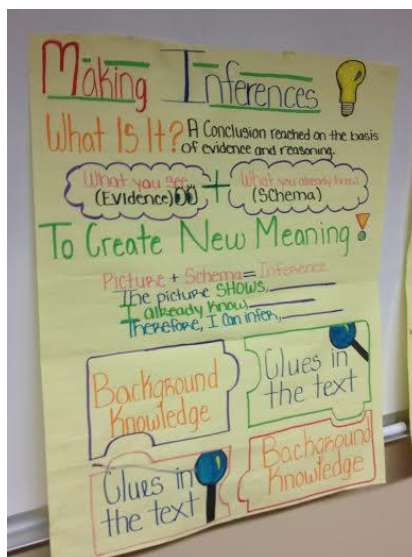 Making Inferences
What Is It? A Conclusion reached on the basis
of evidence and reasoning.
What you see + What you already know
(Evidence) (Schema)
To Create New Meaning!
Picture + Schema = Inference
The picture SHOWS,
I already know,
Therefore, I can infer,
Background
Knowledge
Clues in
the text
Clues in
the text
Background
Knowledge